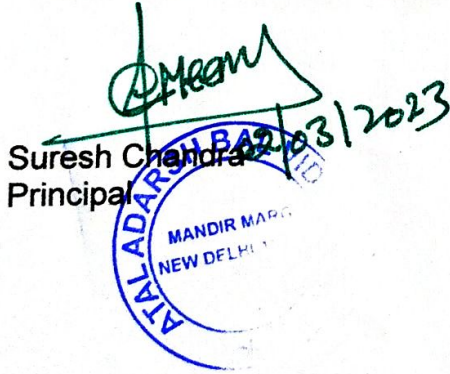 02/03/2023
Suresh Chandra
Principal
ATAL ADARSH BA
MANDIR MARG
NEW DELHI